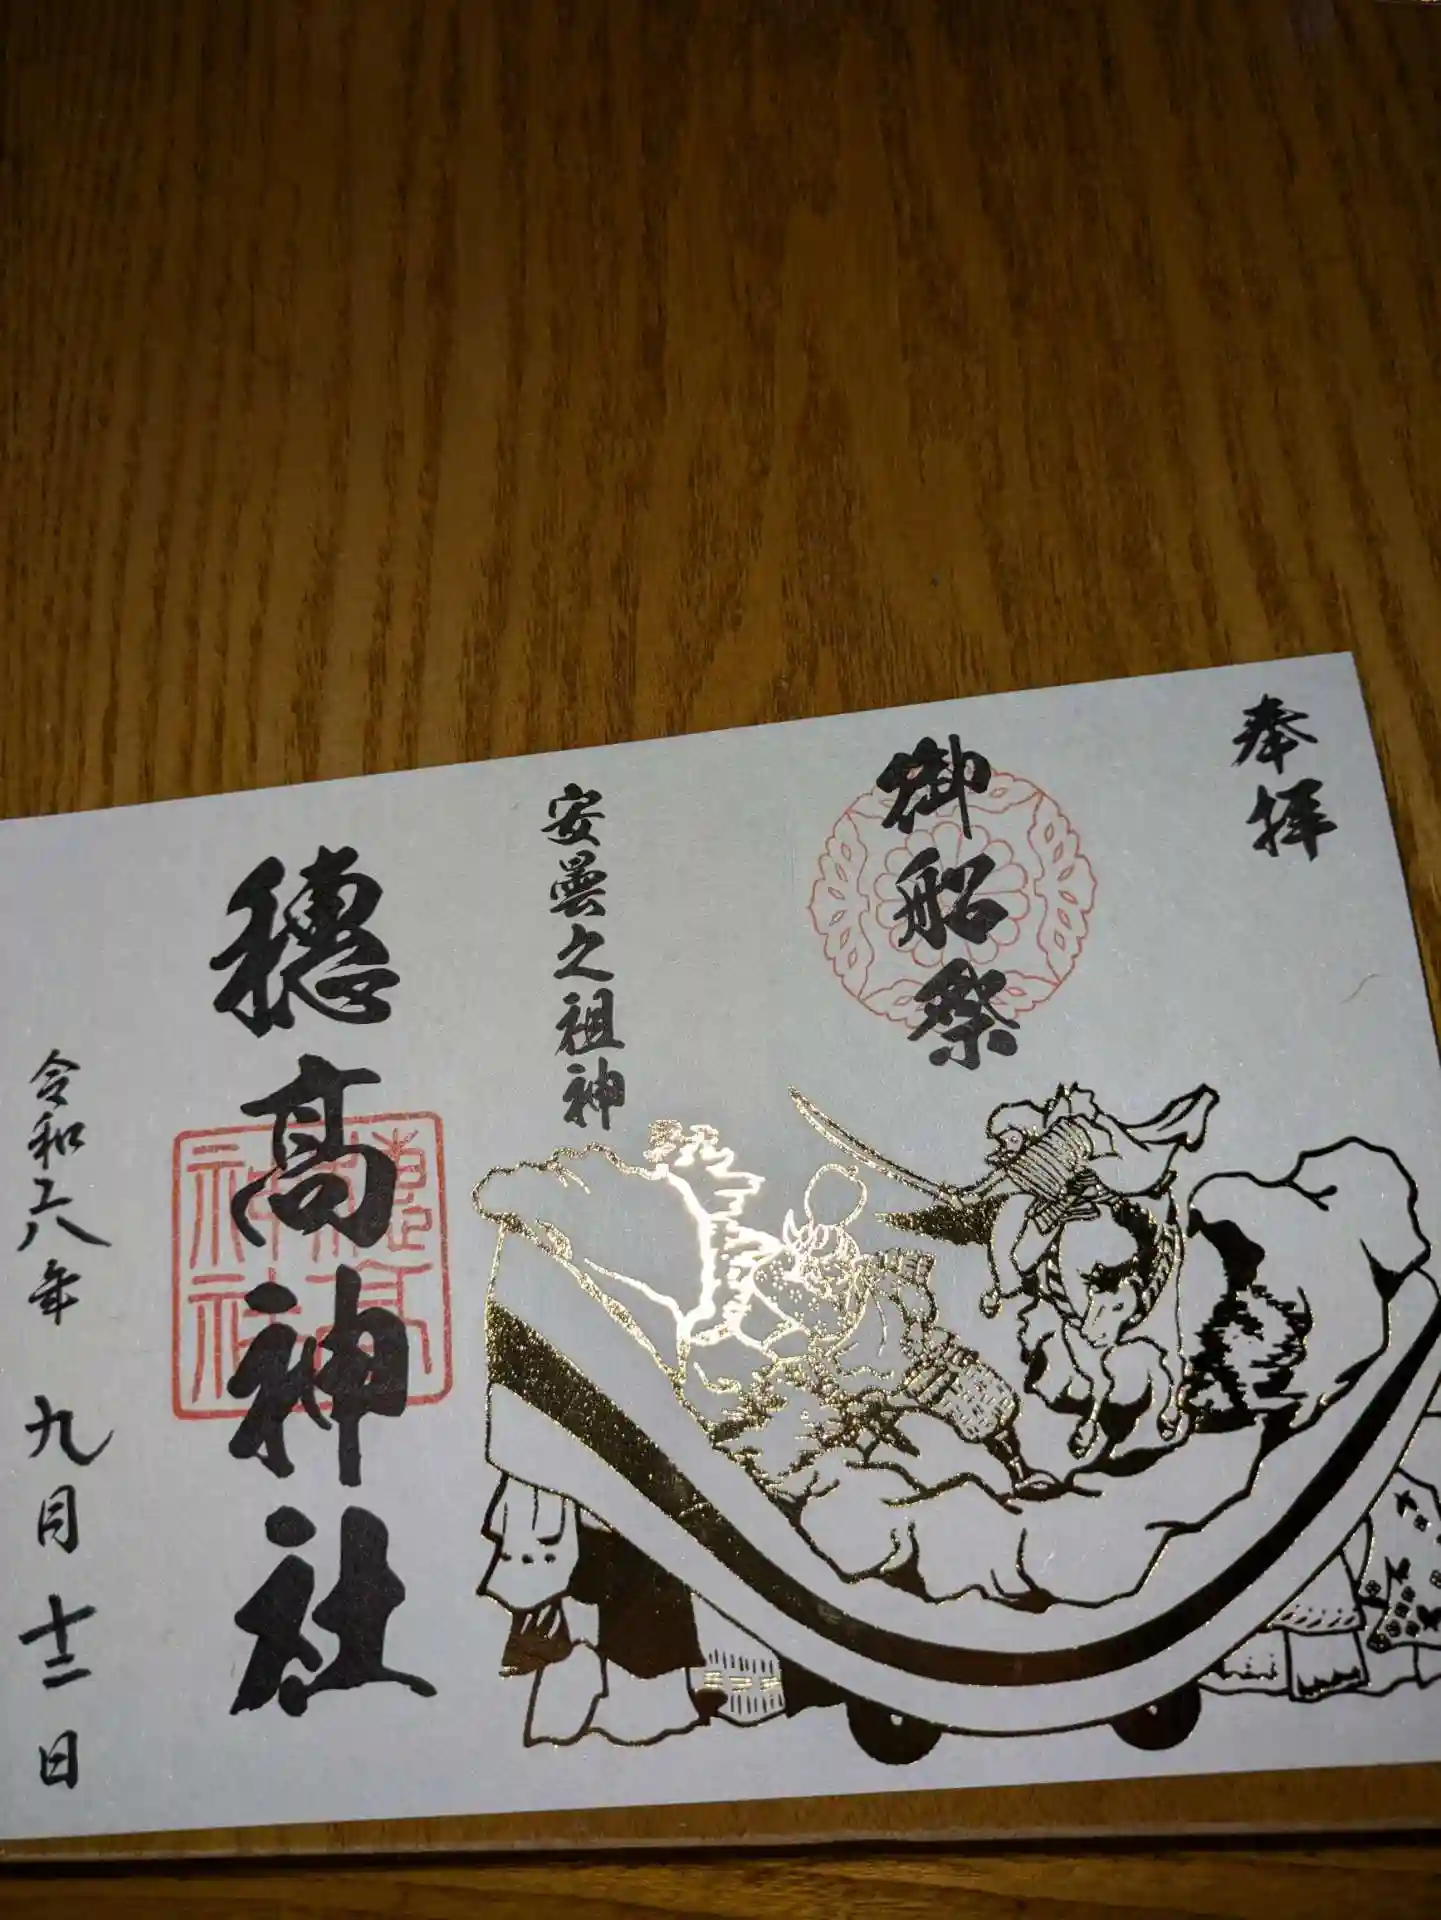 奉拝
御船祭
安曇之祖神
穂高神社
穂高神社
令和六年 九月 十二日